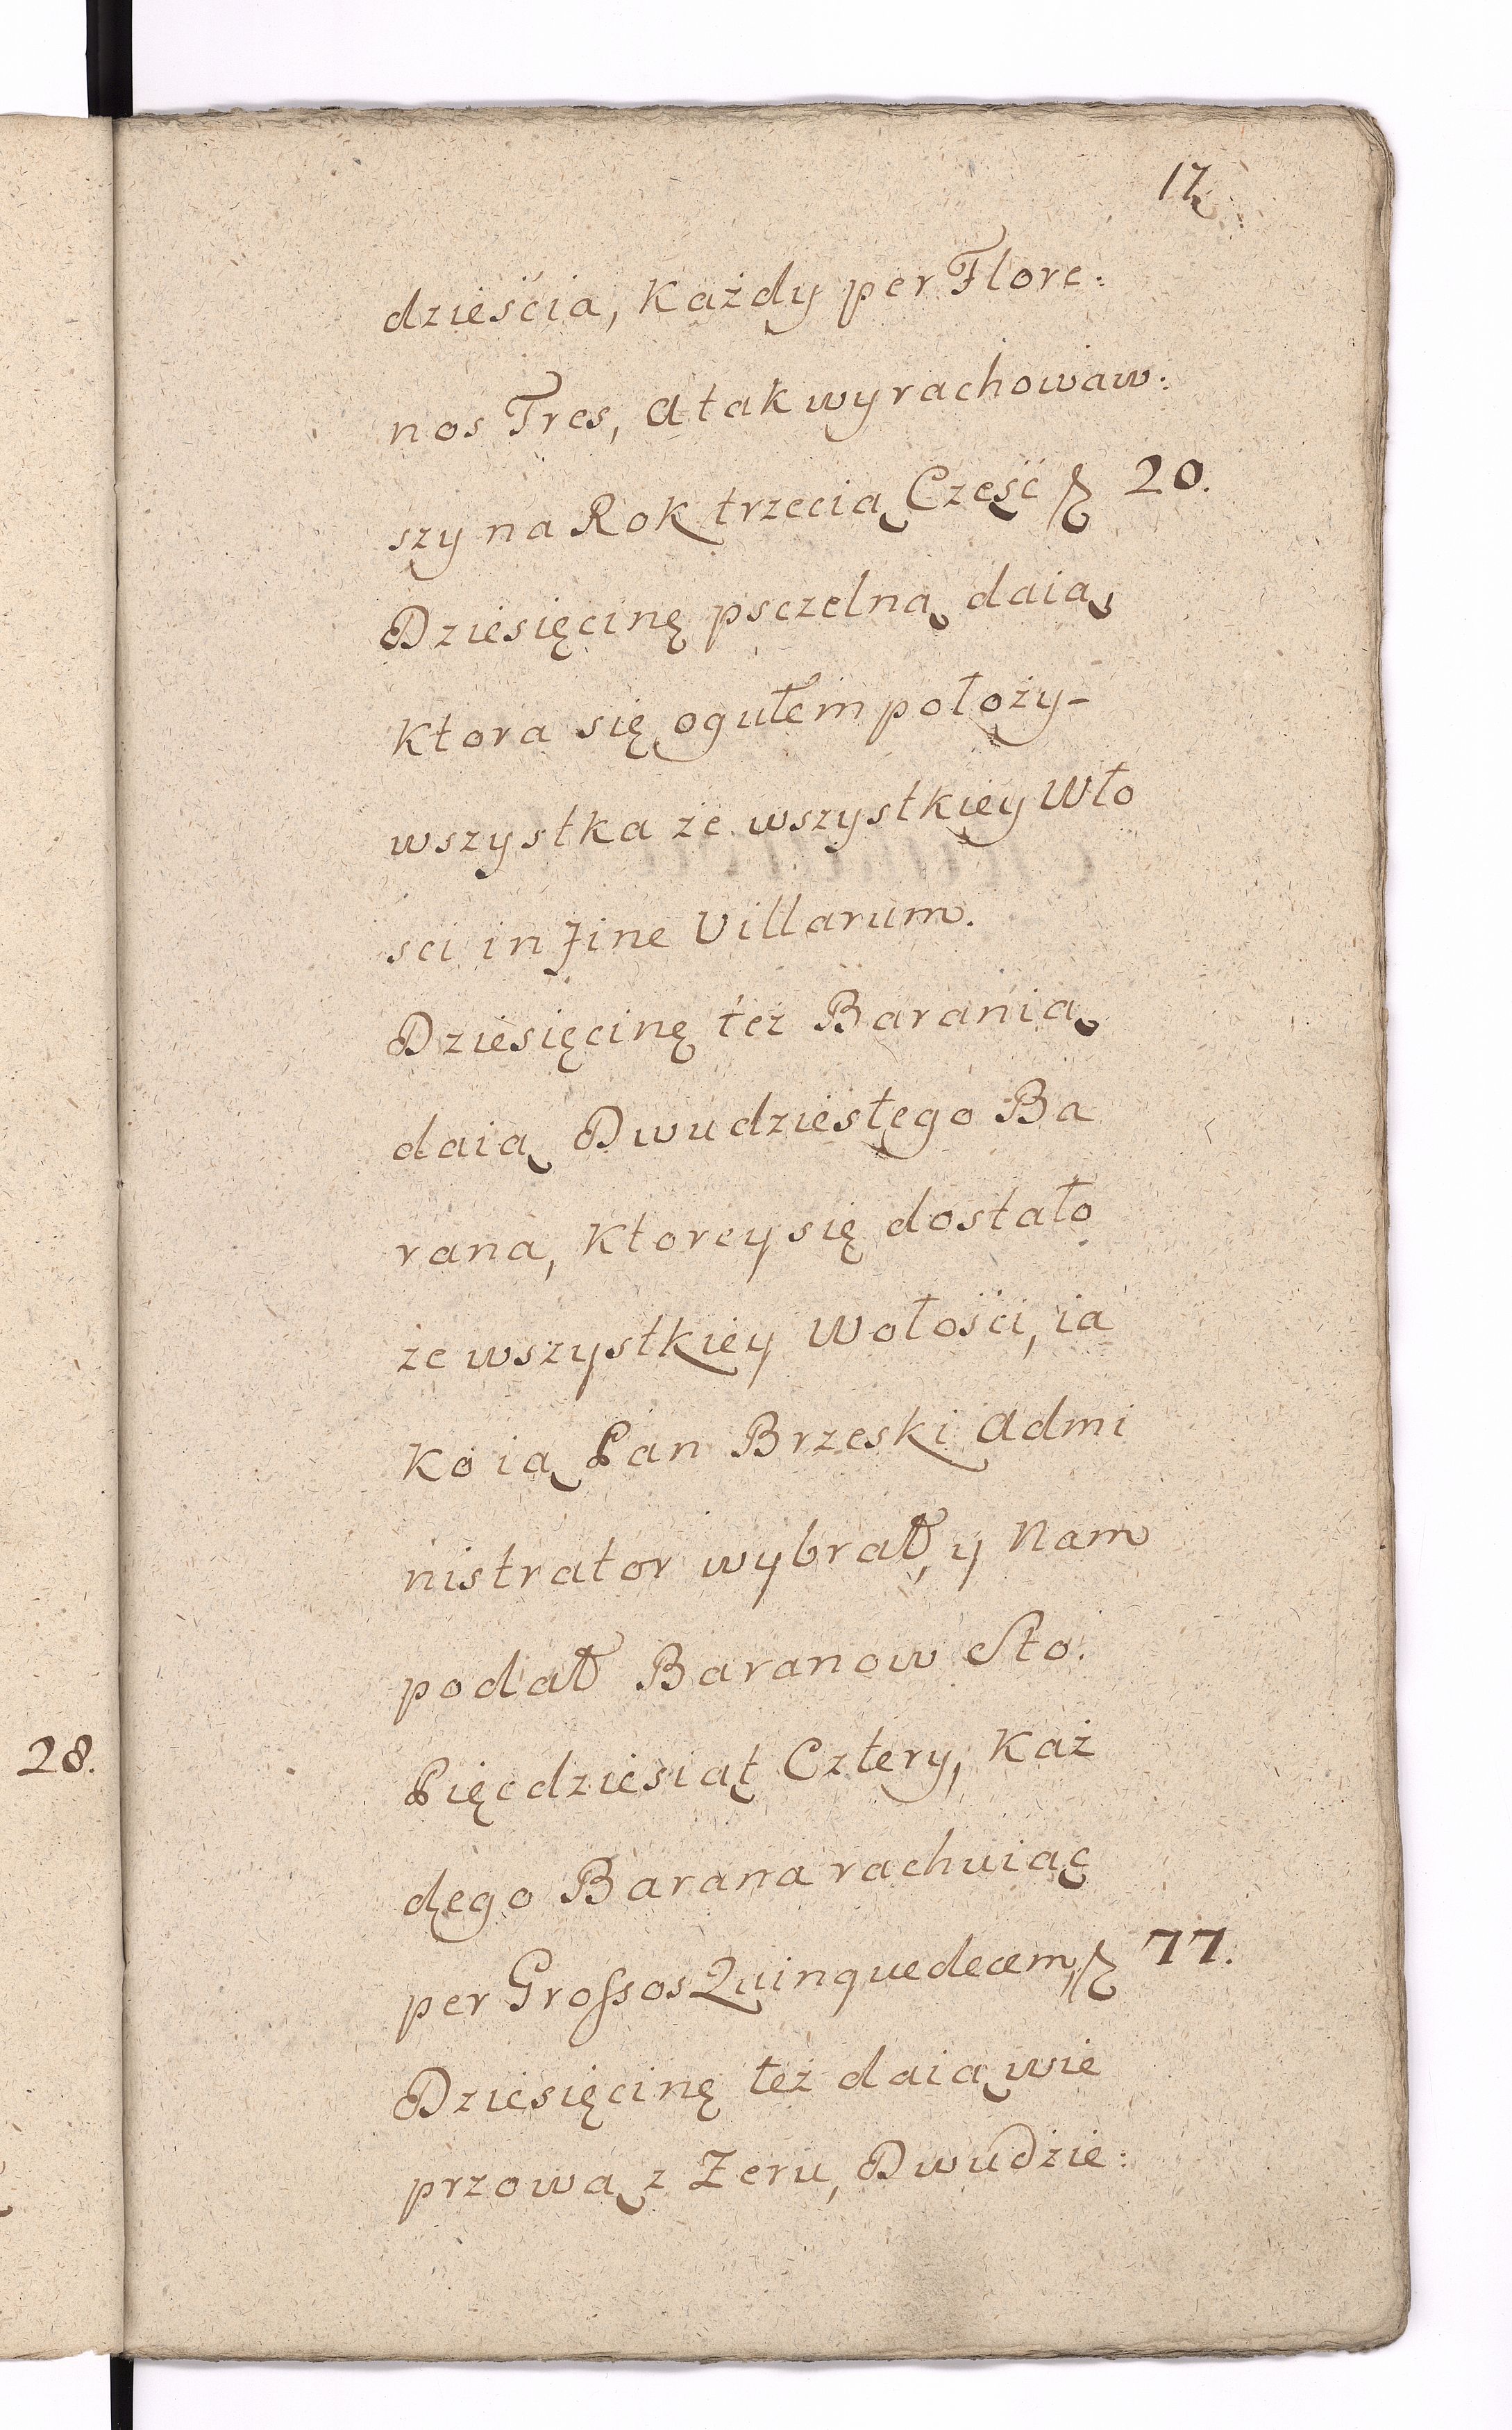 17
dzieścia, Każdy per Flore:
nos Tres, a tak wyrachowaw:
szy na Rok trzecią Część ƒ 20.
Dziesięcinę psczelną daią,
Ktora się ogułem położy-
wszystka ze wszystkiey Wło
sci in fine Villarum.
Dziesięcinę też Baranią
daią Dwudziestego Ba
rana, Ktorey się dostało
ze wszystkiey Wołości, ia
ko ią Pan Brzeski Admi
nistrator wybrał, y Nam
podał Baranow Sto.
Pięcdziesiąt Cztery, Każ
dego Barana rachuiąc
per Grossos Quinquedecem, ƒ 77.
Dziesięcinę też daią wie
przową z Zeru, Dwudzie:
28.